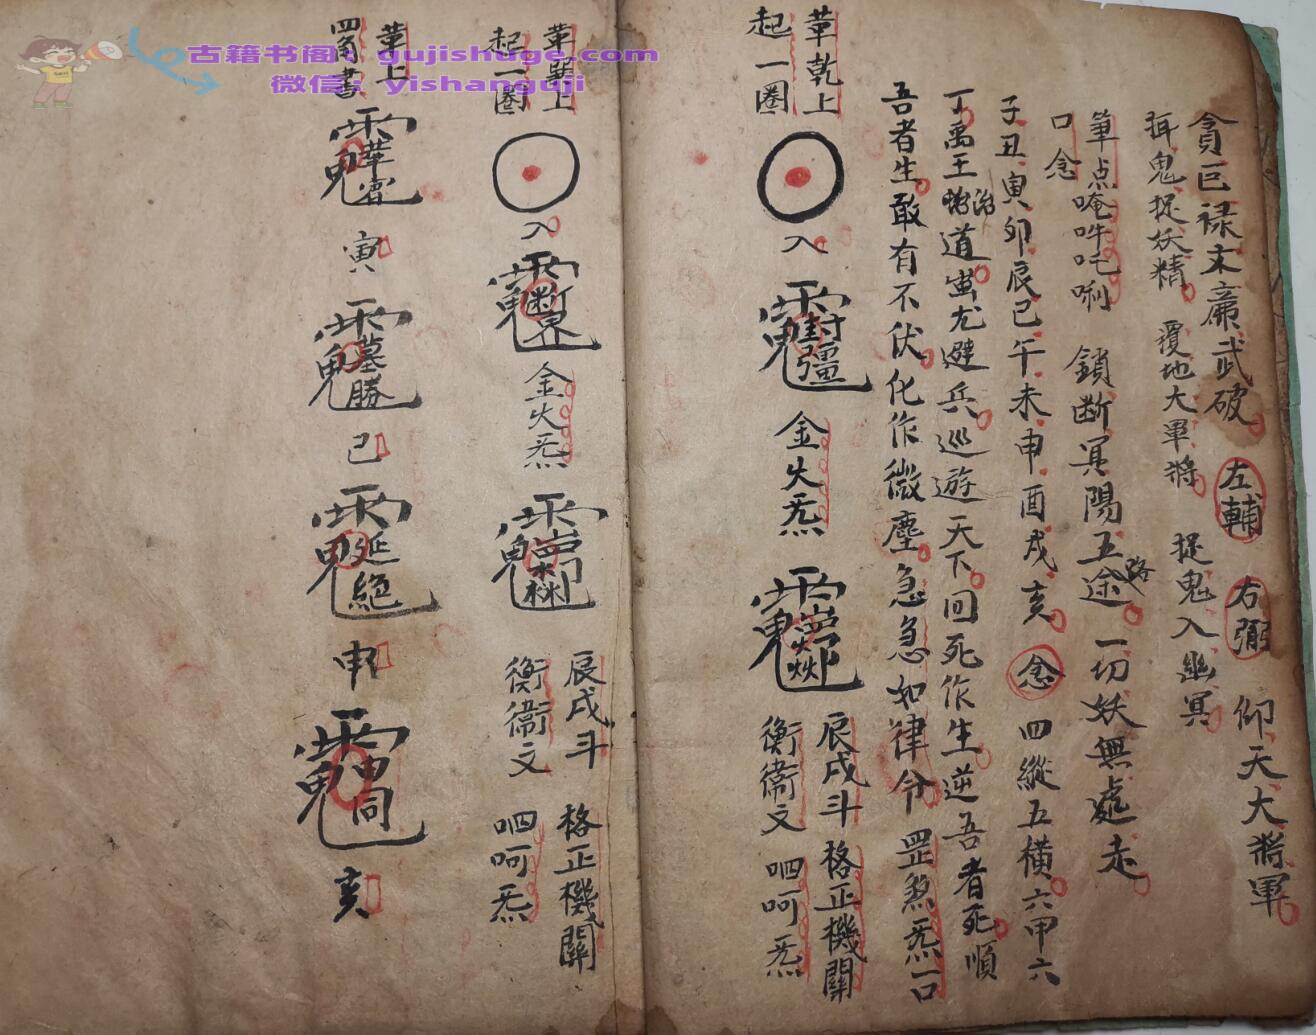 古籍书阁：gujishuge.com
微信：yishanguji
貪巨禄文廉武破 左輔 右弼 仰天大將軍
鬼捉妖精 覆地大軍將 捉鬼入幽冥
筆点唵吽吒唎 鎖断冥陽五途路 一切妖無處走
口念
子丑寅卯辰巳午未申酉戌亥 念 四縱五橫六甲六
丁禹王治道蚩尤避兵巡遊天下回死作生逆吾者死順
吾者生敢有不伏化作微塵急急如律令 罡煞炁一口
草乾上
起一圈
入
封疆
金火炁
辰戌斗 格正機關
衡衞文 呬呵炁
草巽上
起一圈
入
断界
金火炁
辰戌斗 格正機關
衡衞文 呬呵炁
草上
四肖書
寅
墓勝
己
延絕
申
同
亥